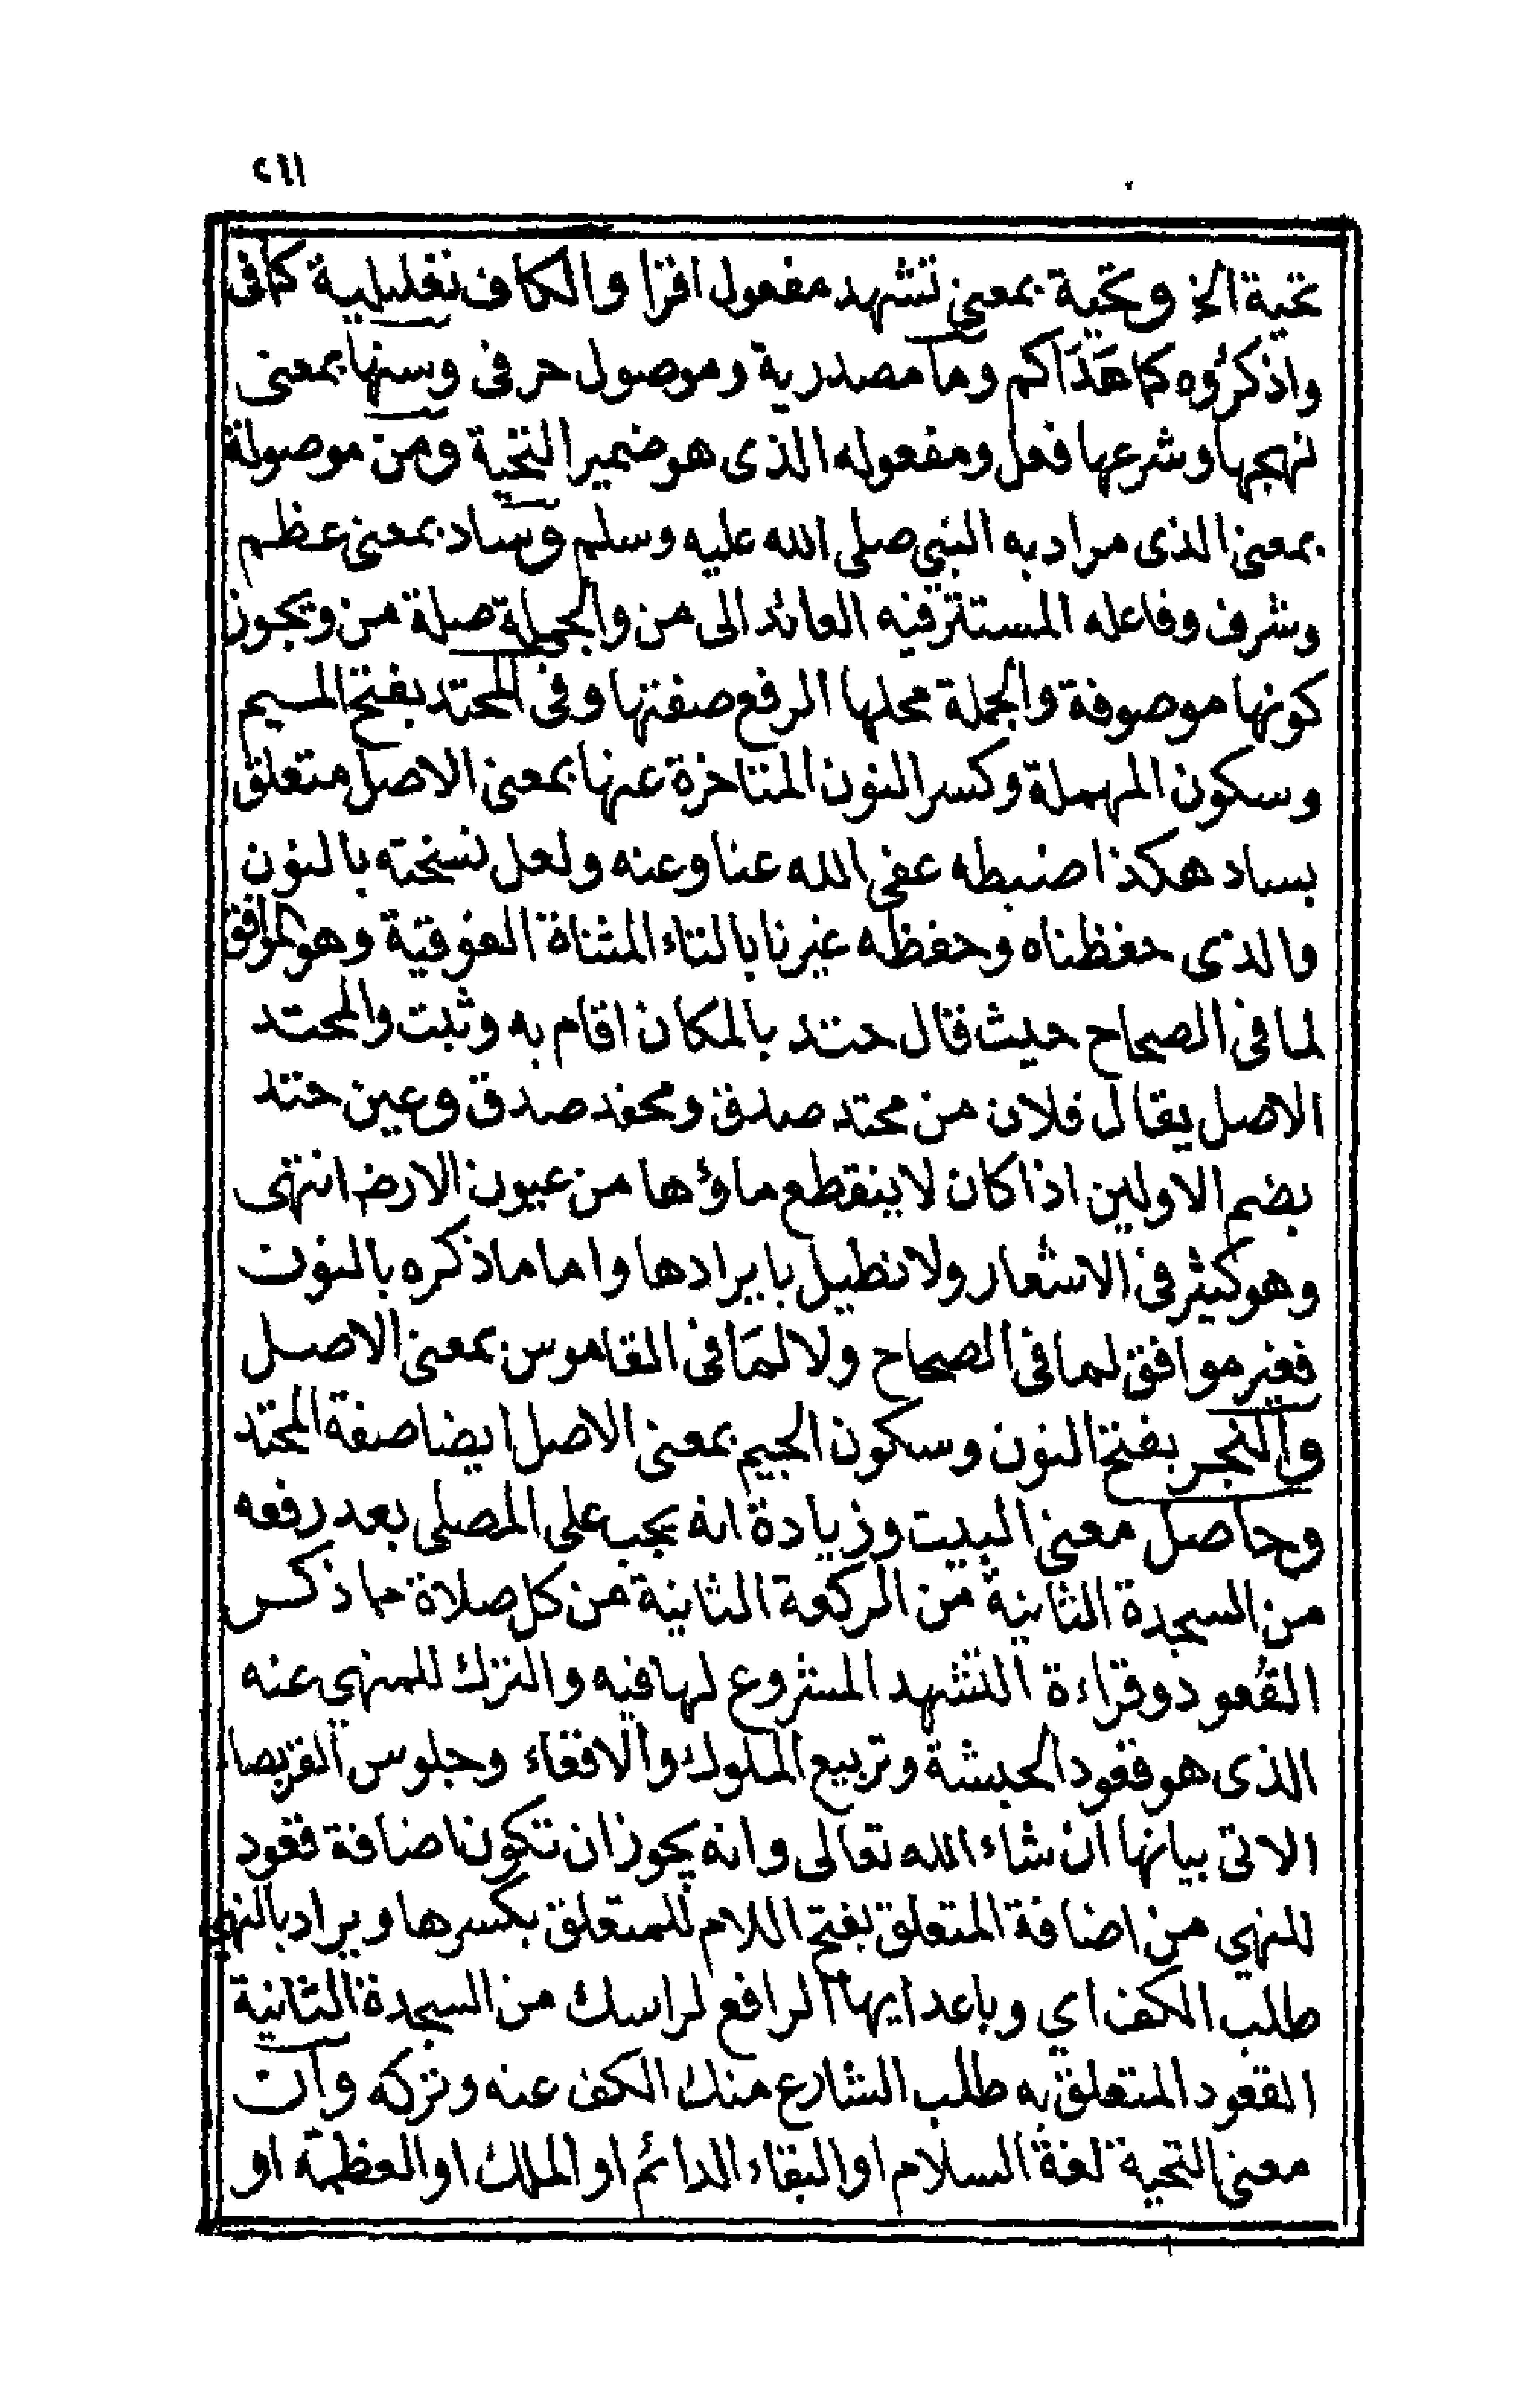 ٢١١
تحية الخ وتحية بمعنى تشهد مفعول اقرا والكاف تعليلية كما فى
واذكروه كما هَدَاكم وما مصدرية وموصول حرفى وسنها بمعنى
نهجها وشرعها فعل ومفعوله الذى هو ضمير التحية ومن موصولة
بمعنى الذى مراد به النبى صلى الله عليه وسلم وساد بمعنى عظم
وشرف وفاعله المستتر فيه العائد الى من والجملة صلة من ويجوز
كونها موصوفة والجملة محلها الرفع صفتها وفى المحتد بفتح الميم
وسكون المهملة وكسر النون المتاخرة عنها بمعنى الاصل متعلق
بساد هكذا ضبطه عفى الله عنا وعنه ولعل نسخته بالنون
والذى حفظناه وحفظه غيرنا بالتاء المثناة الفوقية وهو الموافق
لما فى الصحاح حيث قال حتد بالمكان اقام به وثبت والمحتد
الاصل يقال فلان من محتد صدق ومحفد صدق وعين حتد
بضم الاولين اذا كان لا ينقطع ماؤها من عيون الارض انتهى
وهو كثير فى الاشعار ولا نطيل بايرادها واما ما ذكره بالنون
فغير موافق لما فى الصحاح ولا لمَا فى القاموس بمعنى الاصل
والنجر بفتح النون وسكون الجيم بمعنى الاصل ايضا صفة المحتد
وحاصل معنى البيت وزيادة انه يجب على المصلى بعد رفعه
من السجدة الثانية من الركعة الثانية من كل صلاة مما ذكر
القُعود وقراءة التشهد المشروع لها فيه والترك للمنهي عنه
الذى هو قعود الحبشة وتربيع الملوك والاقعاء وجلوس القرفصاء
الاتى بيانها ان شاء الله تعالى وانه يجوز ان تكون اضافة قعود
للنهي من اضافة المتعلق بفتح اللام للمتعلق بكسرها ويراد بالنهي
طلب الكف اي وباعد ايها الرافع لراسك من السجدة الثانية
القعود المتعلق به طلب الشارع منك الكف عنه وتركه وان
معنى التحية لغة السلام او البقاء الدائم او الملك او العظمة او